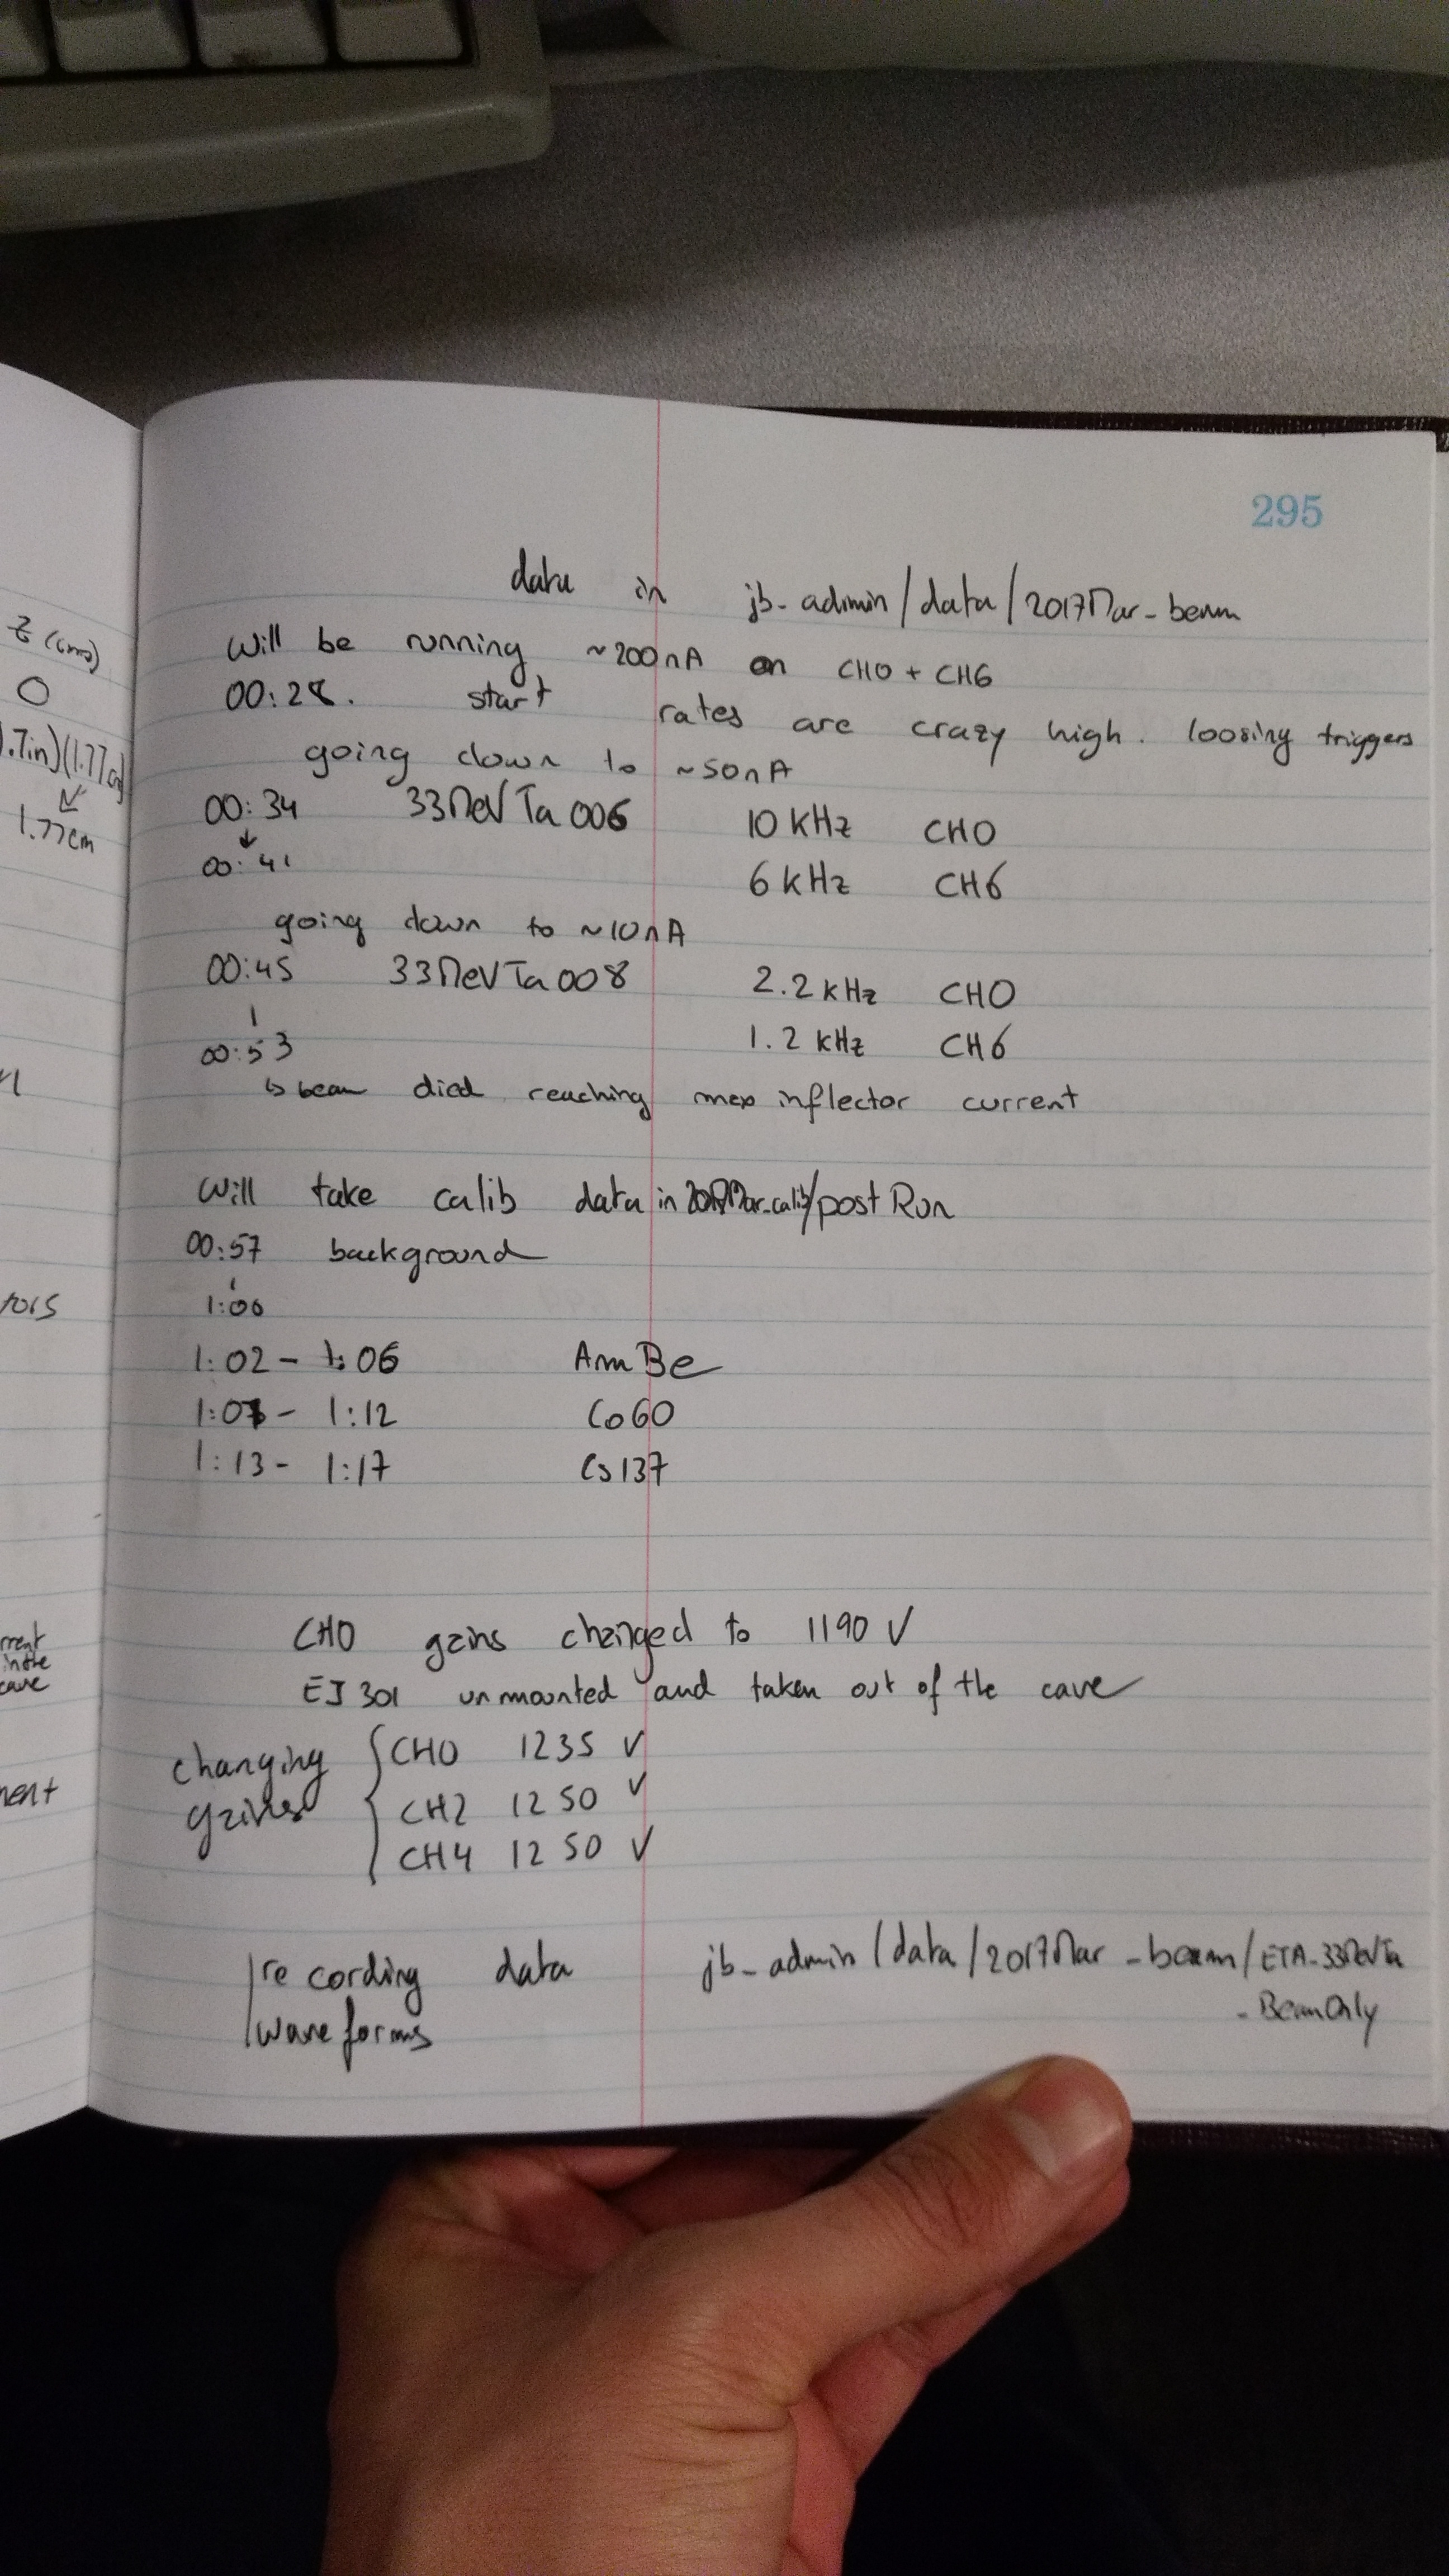 295
data in jb-admin/data/2017Mar-beam
Will be running ~200nA on CH0 + CH6
00:28. start rates are crazy high. loosing triggers
going down to ~50nA
00:34 33MeVTa006 10 kHz CH0
↓
00:41 6 kHz CH6
going down to ~10nA
00:45 33MeVTa008 2.2 kHz CH0
00:53 1.2 kHz CH6
↳ beam died reaching max inflector current
Will take calib data in 2017Mar-calib/postRun
00:57 background
1:00
1:02 - 1:06 AmBe
1:07 - 1:12 Co60
1:13 - 1:17 Cs137
CH0 gains changed to 1190 V
EJ301 unmounted and taken out of the cave
changing gains
CH0 1235 V
CH2 1250 V
CH4 1250 V
recording data jb-admin/data/2017Mar-beam/ETA-33MeVTa
waveforms -BeamOnly
z (cm)
0
.7in)(1.77cm)
1.77cm
tors
rrent
in the
cave
ment